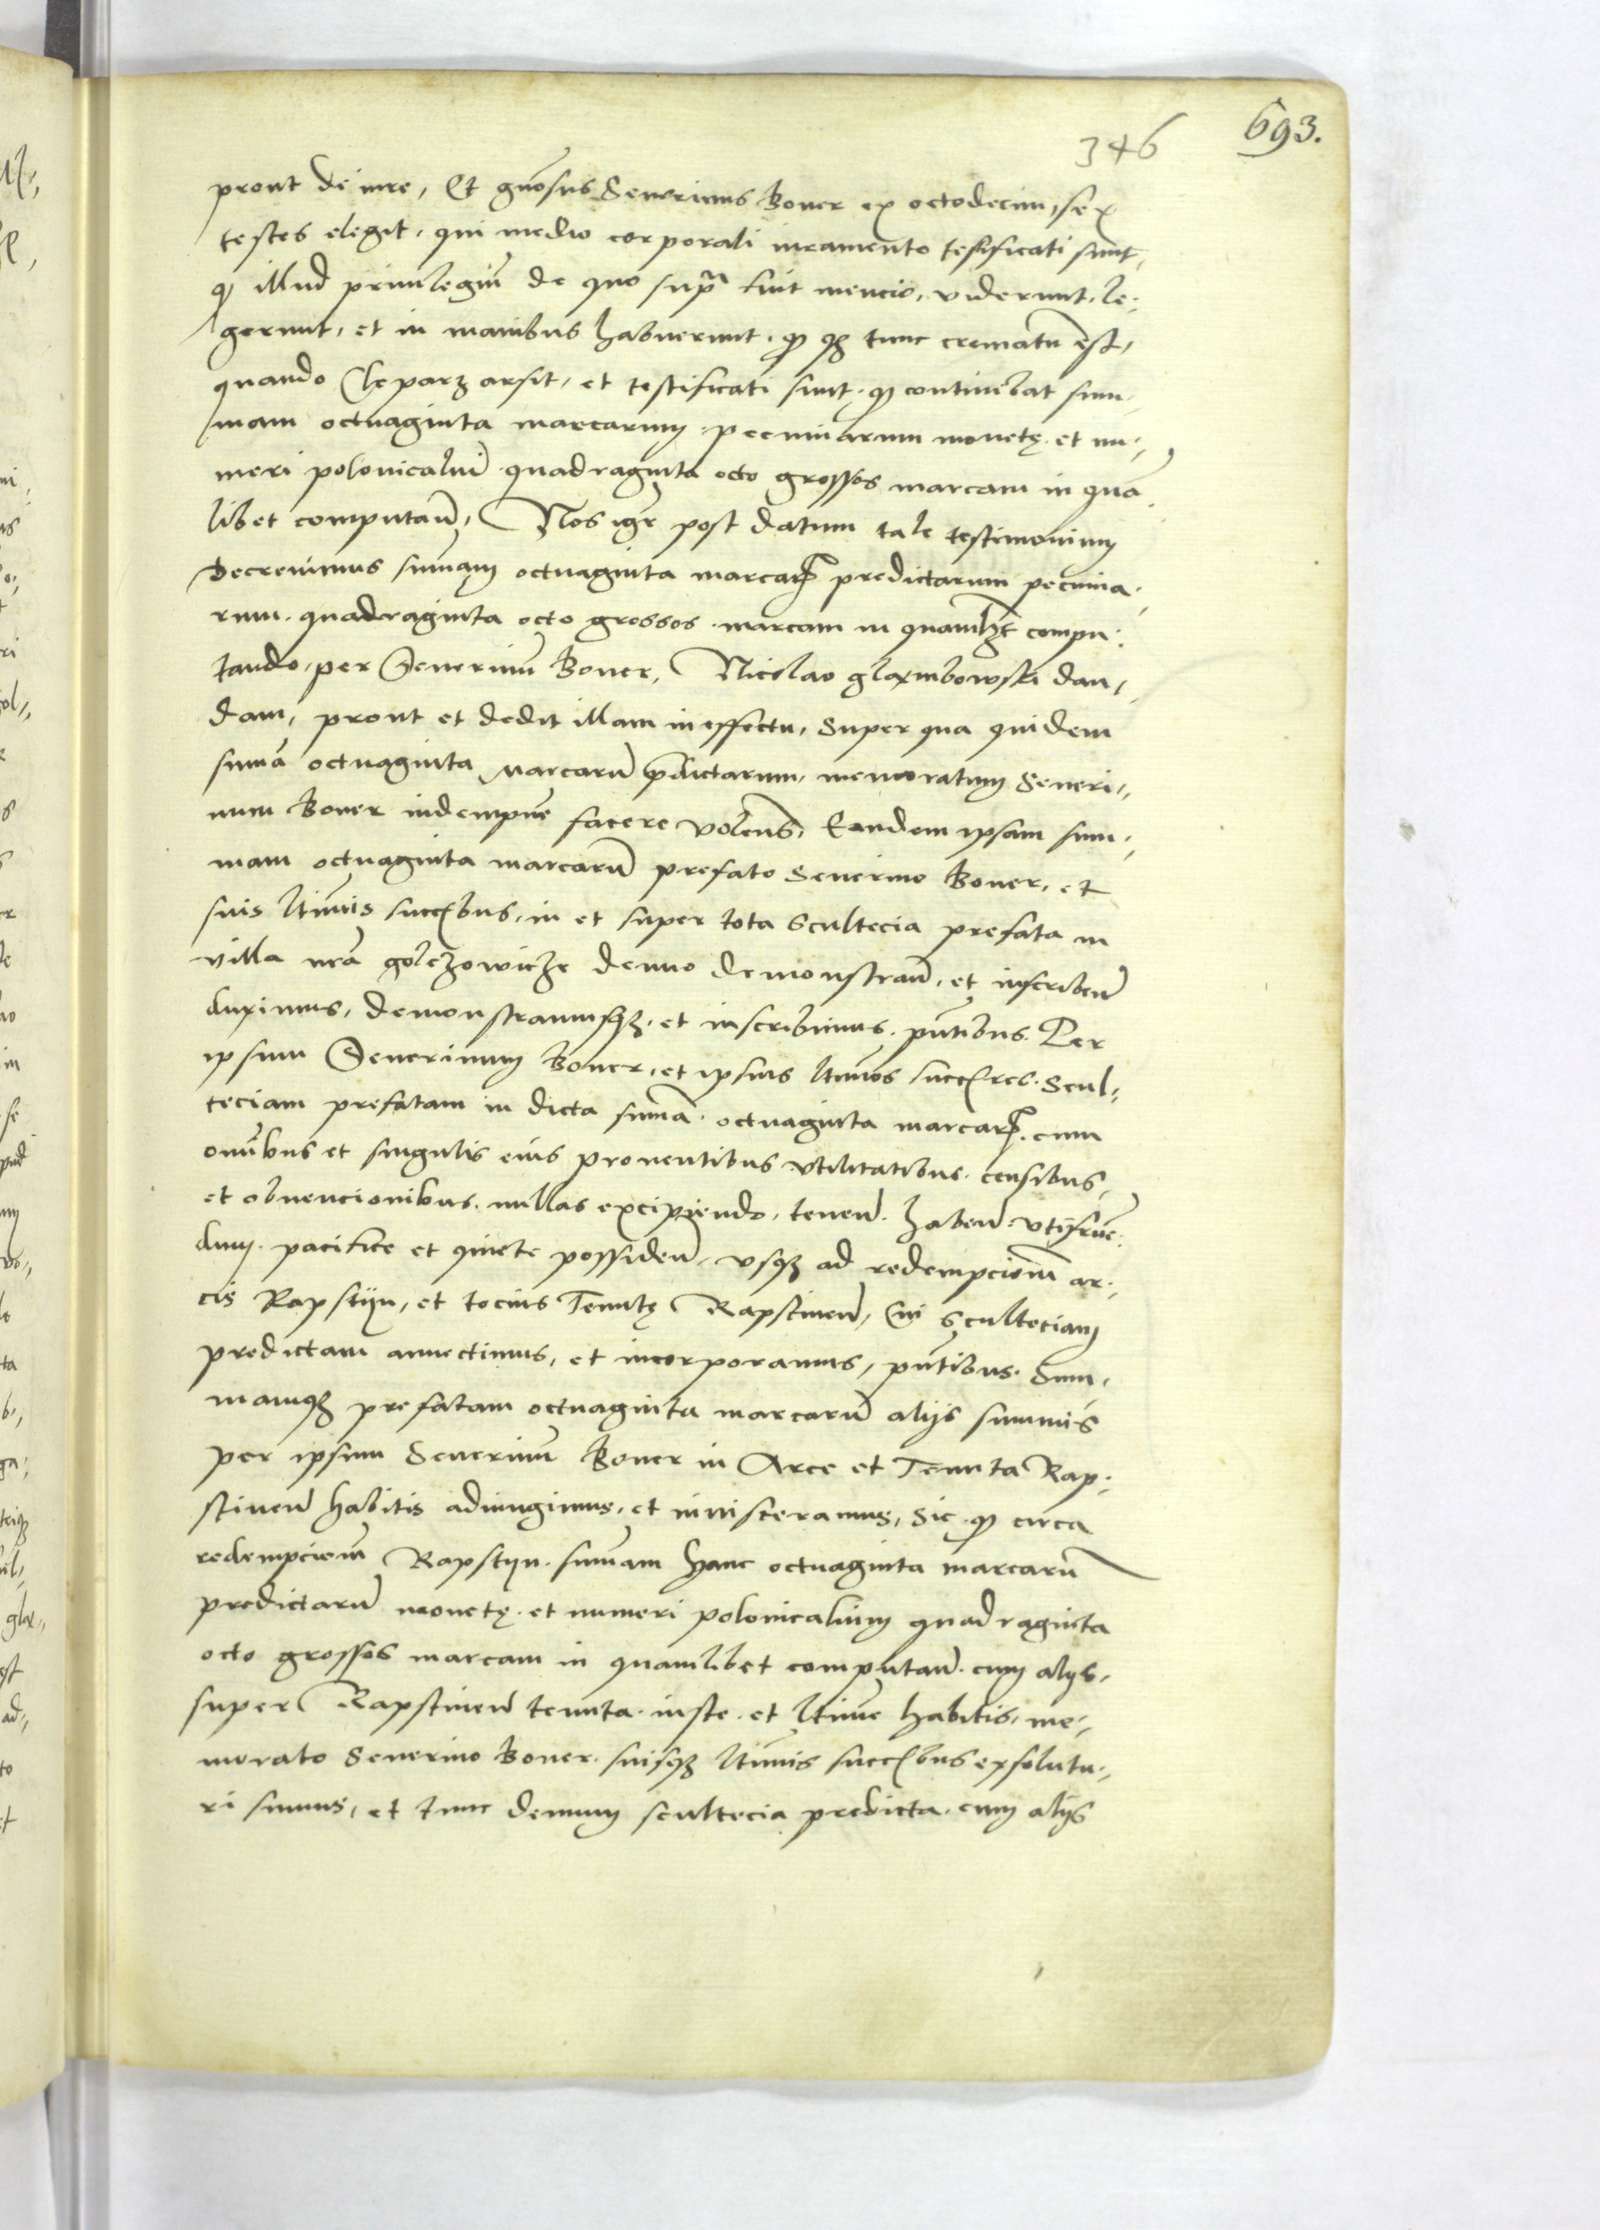 693.
346
prout de iure, Et gnosus Severinus Boner ex octodecim, sex
testes elegit, qui medio corporali iuramento testificati sunt,
q illud privilegiu de quo supra fuit mencio, viderunt, le-
gerunt, et in manibus habuerunt, tunc crematu est,
quando Cleparz arsit, et testificati sunt, q continebat sum-
mam octuaginta marcarum, pecuniarum monetę et nu-
meri polonicaliu quadraginta octo grossos marcam in qua-
libet computan, Nos igr post datum tale testimonium
decrevimus sumam octuaginta marcar predictarum pecunia-
rum, quadraginta octo grossos marcam in quamlet compu-
tando, per Severinu Boner, Nicolao glambowski dan-
dam, prout et dedit illam in effectu, Super qua quidem
suma octuaginta marcaru pdictarum, memoratum Severi-
num Boner indempne facere volens, Eandem ipsam sum-
mam octuaginta marcaru prefato Severino Boner, et
suis ltimis succbus, in et super tota scultecia prefata in
villa nra golczowicze denuo demonstran, et inscriben
duximus, demonstramusqz, et inscribimus putibus. Per
ipsum Severinum Boner, et ipsius ltimos succres, scul-
teciam prefatam in dicta suma octuaginta marcar, cum
omibus et singulis eius proventibus utilitatibus, censibus,
et obvencionibus, nullas excipiendo, tenen, haben, utifruen-
dum, pacifice et quiete possiden, usqz ad redempcionem ar-
cis Rapstijn, et tocius Tenutę Rapstinen, Cui sculteciam
predictam annectimus, et incorporamus, putibus. Sum-
mamqz prefatam octuaginta marcaru alijs summis
per ipsum Severinu Boner in Arce et Tenuta Rap-
stinen habitis adiungimus, et invisceramus, Sic q circa
redempcioem Rapstijn sumam hanc octuaginta marcaru
predictaru monetę et numeri polonicalium quadraginta
octo grossos marcam in quamlibet computan, cum alijs,
super Rapstinen tenuta iuste et ltime habitis, me-
morato Severino Boner suisqz ltimis succbus exsolutu-
ri sumus, et tunc demum scultecia predicta cum alijs